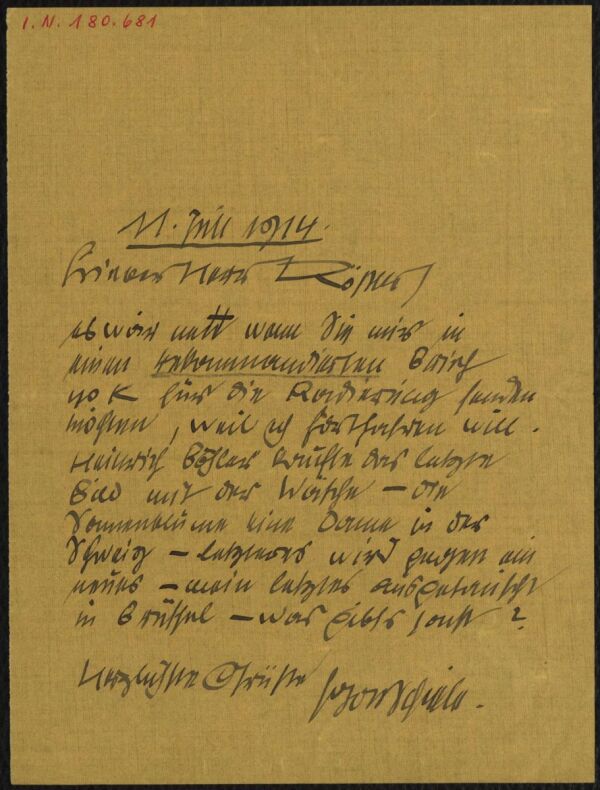 I.N. 180.681
11. Juli 1914.
Lieber Herr Rössler!
es wär nett wenn Sie mir in
einen rekommandierten Brief
40 K für die Radierung senden
möchten, weil ich fortfahren will.
Heinrich Böhler kaufte das letzte
Bild mit der Wäsche – die
Sonnenblume eine Dame in der
Schweiz – letzteres wird gegen ein
neues – mein letztes ausgetauscht
in Brüssel – was gibts sonst?
Herzlichste Grüsse
Egon Schiele.